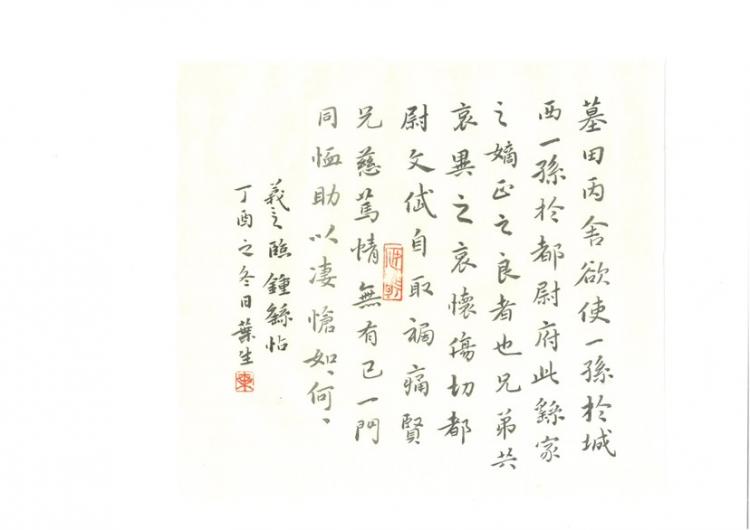 墓田丙舍欲使一孫於城
西一孫於都尉府此繇家
之嫡正之良者也兄弟共
哀異之哀懷傷切都
尉文岱自取禍痛賢
兄慈篤情無有已一門
同恤助以凄愴如、何、
羲之臨鍾繇帖
丁酉之冬日葉生
東